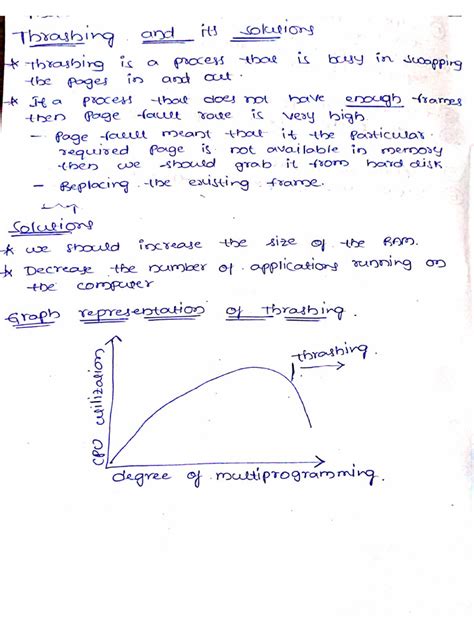 Thrashing and its solutions
* Thrashing is a process that is busy in swapping
the pages in and out.
* If a process that does not have enough frames
then page fault rate is very high
- Page fault meant that if the particular
required page is not available in memory
then we should grab it from hard disk
- Replacing the existing frame.
Solutions
* we should increase the size of the RAM.
* Decrease the number of applications running on
the computer
Graph representation of Thrashing.
thrashing.
CPU utilization
degree of multiprogramming.